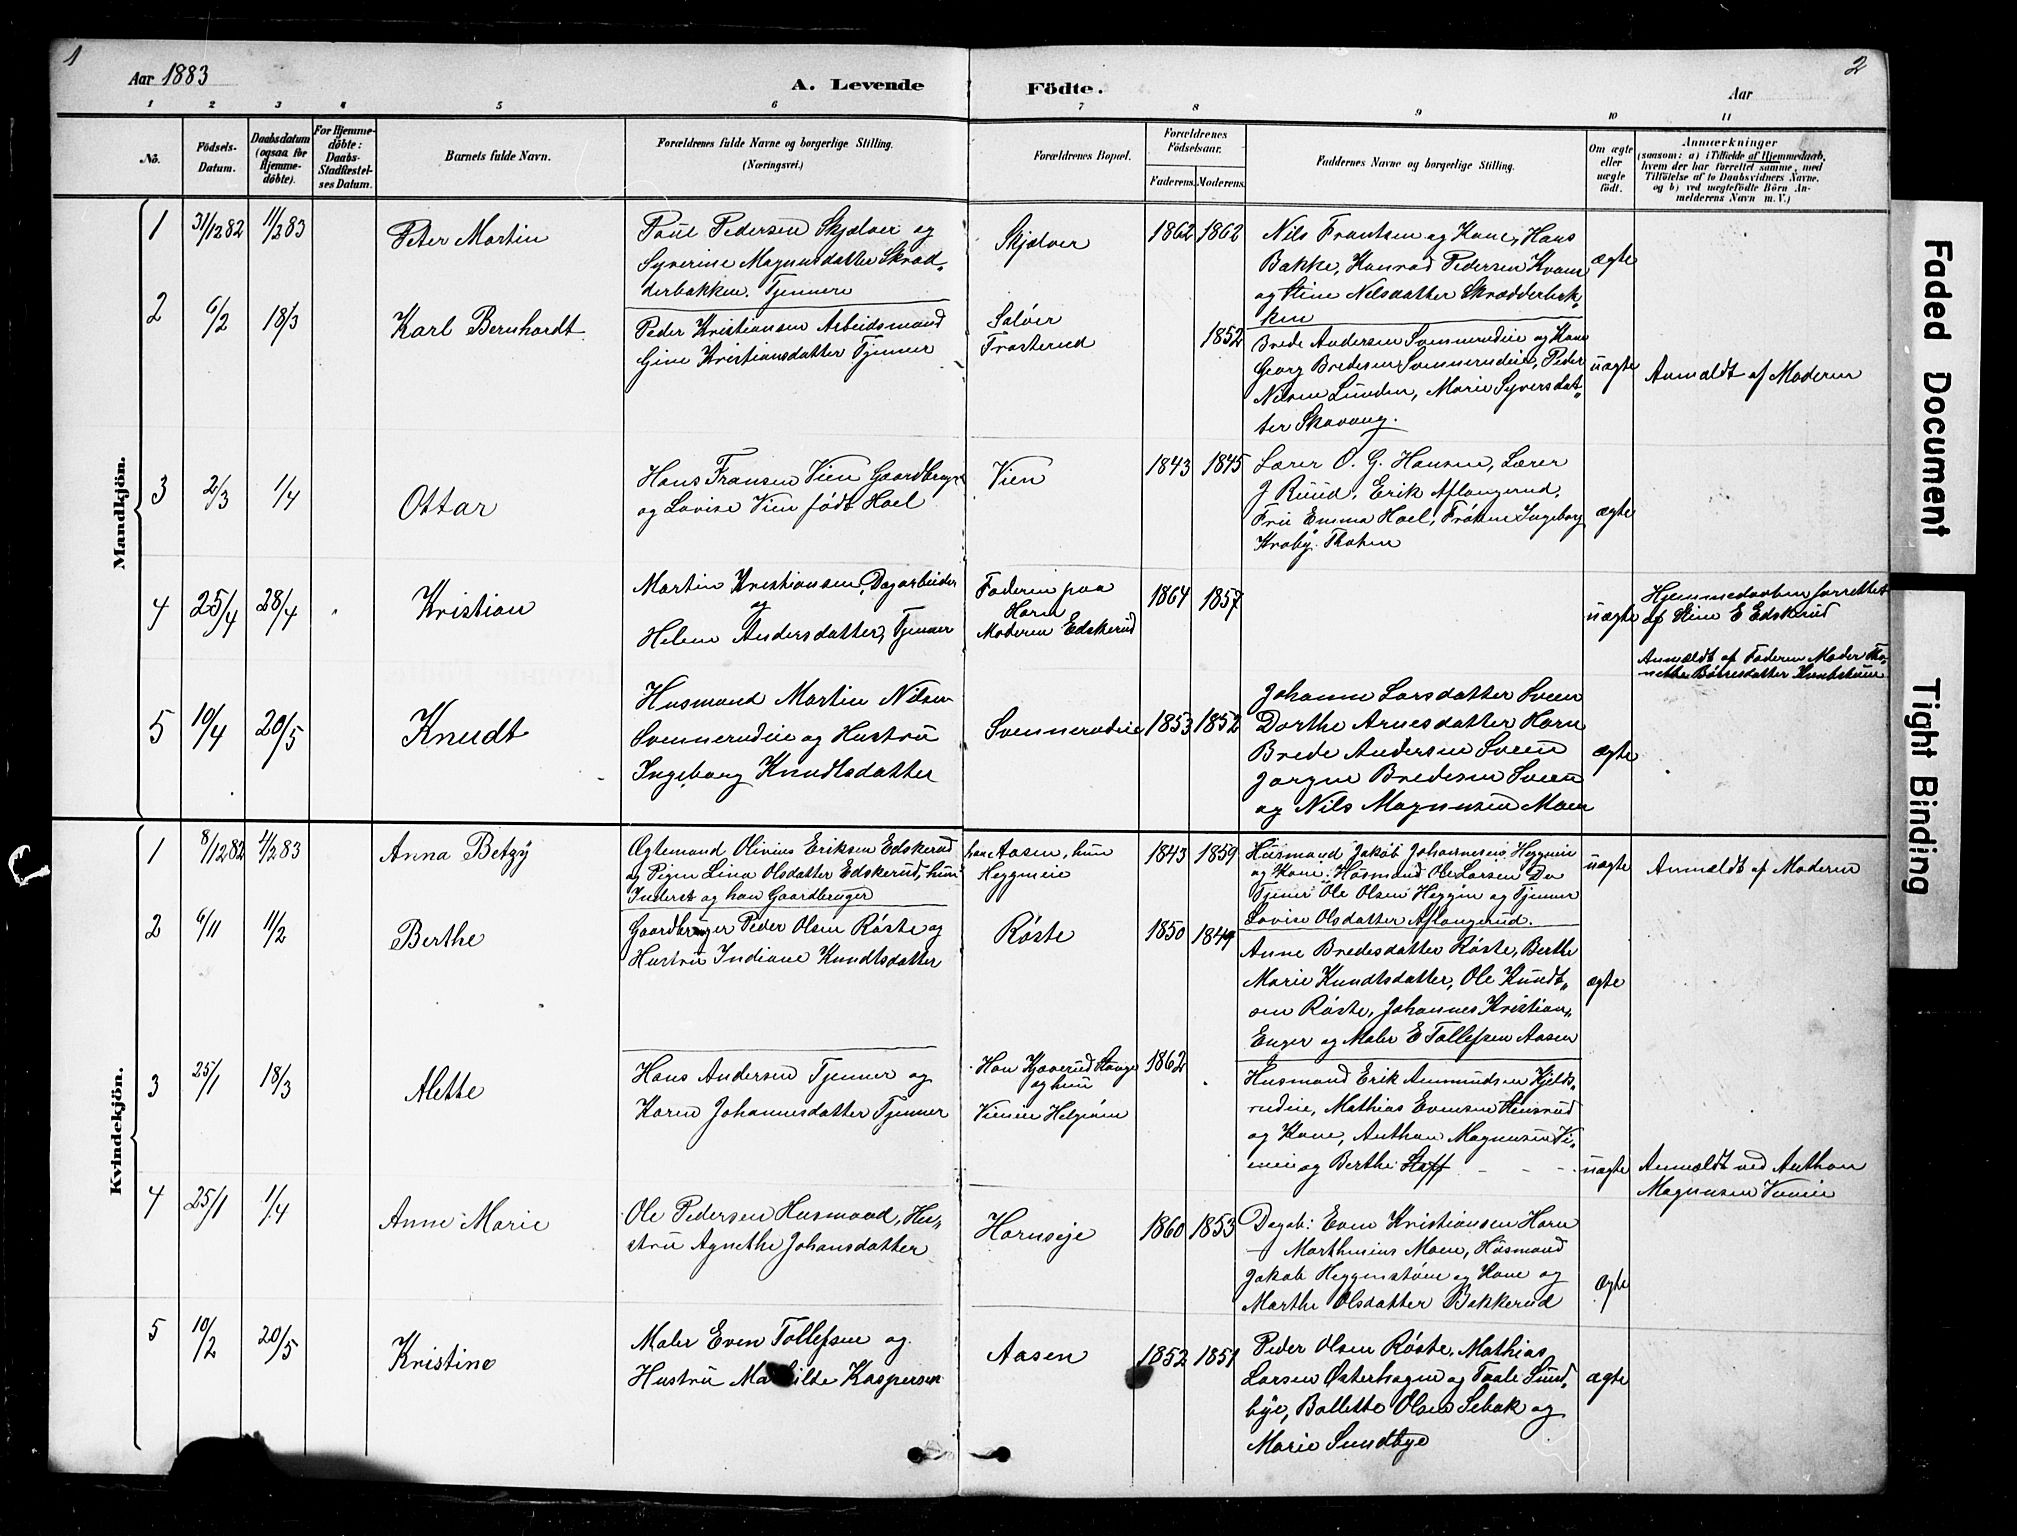 1
2
Aar 1883
A. Levende
Födte.
Aar
1 2 3 4 5 6 7 8 9 10 11
No.
Födsels-
Datum.
Daabsdatum
(ogsaa for
Hjemme-
döbte).
For Hjemme-
döbte:
Daabs-
Stadfæstel-
ses Datum.
Barnets fulde Navn.
Forældrenes fulde Navne og borgerlige Stilling.
(Næringsvei.)
Forældrenes Bopæl.
Forældrenes
Födselsaar.
Faderens.
Moderens.
Faddernes Navne og borgerlige Stilling.
Om ægte
eller
uægte
födt.
Anmærkninger
(saasom: a) i Tilfælde af Hjemmedaab,
hvem der har forrettet samme, med
Tilföielse af to Daabsvidners Navne,
og b) ved uægtefödte Börn An-
melderens Navn m. V.)
Mandkjön.
1
31/12 82
11/2 83
Peter Martin
Poul Pedersen Skjølver og
Syverine Magnusdatter Skræd„
derbakken. Tjenere
Skjølver
1862
1862
Nils Frantsen og Kone, Hans
Bakke, Konrad Pedersen Kvam
og Stine Nilsdatter Skrædderbak„
ken
ægte
2
6/2
18/3
Karl Bernhardt
Peder Kristiansen Arbeidsmand
Gine Kristiansdatter Tjener
Sølver
Frosterud
1852
Brede Andersen Svennerudeie og Kone
Georg Bredesen Svennerudeie, Peder
Nilsen Lunden, Marie Syversdat„
ter Skavang.
uægte
Anmeldt af Moderen
3
2/3
1/4
Ottar
Hans Fransen Vien Gaardbruger
og Lovise Vien født Hoel
Vien
1843
1845
Lærer O. G. Hansen, Lærer
J Ruud, Erik Aflangerud,
Frü Emma Hoel, Frøken Ingeborg
Kraby Thoten
ægte
4
25/4
28/4
Kristian
Martin Kristiansen, Dagarbeider
og
Helene Andersdatter, Tjener
Faderen paa
Horn
Moderen Edskerud
1864
1857
uægte
Hjemmedaaben forrettet
af Stine E Edskerud
Anmeldt af Faderen Moder Tho„
nette Børresdatter
5
10/4
20/5
Knudt
Husmand Martin Nilsen
Svennerudeie og Hustrü
Ingeborg Knudtsdatter
Svennerudeie
1853
1852
Johanne Larsdatter Sveen
Dorthe Arnesdatter Horn
Brede Andersen Sveen
Jørgen Bredesen Sveen
og Nils Magnussen Moen
ægte
Kvindekjön.
1
8/12 82
11/2 83
Anna Betzy
Ægtemand Olivius Eriksen Edskerud
og Pigen Lina Olsdatter Edskerud, hun
Inderst og han Gaardbruger
han Aasen, hun
Heggneie
1843
1859
Husmand Jakob Johannesen Heggneie
og Kone, Husmand Ole Larsen Do
Tjener Ole Olsen Heggen og Tjener
Lovise Olsdatter Aflangerud.
uægte
Anmeldt af Moderen
2
6/11
11/2
Berthe
Gaardbruger Peder Olsen Røste og
Hustrü Indiane Knudtsdatter
Røste
1850
1849
Anne Bredesdatter Røste, Berthe
Marie Knudtsdatter, Ole Knudt„
sen Røste, Johannes Kristian„
Enger og Maler E Tollefsen Aasen
ægte
3
25/1
18/3
Alette
Hans Andersen Tjener og
Karen Johannesdatter Tjener
Han Kjoverud Stange
og hun
Vieneie Helgøen
1862
Husmand Erik Ammundsen Kjelds„
rudeie, Mathias Evensen Stensrud
og Kone, Anthon Magnussen Vi„
eneie og Berthe Staff
uægte
Anmeldt ved Anthon
Magnussen Vieneie
4
25/1
1/4
Anne Marie
Ole Pedersen Husmand, Hu„
strü Agnethe Johansdatter
Hornseje
1860
1853
Dagab: Even Kristiansen Horn
Marthinius Moen, Husmand
Jakob Heggenstøen og Kone og
Marthe Olsdatter Bakkerud
ægte
5
10/2
20/5
Kristine
Maler Even Tollefsen og
Hustrü Mathilde Kaspersen
Aasen
1852
1851
Peder Olsen Røste, Mathias
Larsen Østerhagen og Taale Sund„
bye, Bollette Olsen Sebak og
Marie Sundbye
ægte
Faded Document
Tight Binding